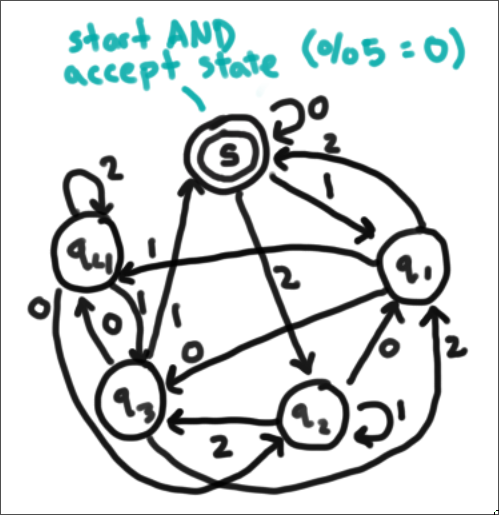 start AND
accept state (%5 = 0)
S
0
2
1
2
q4
1
q1
2
0
1
1
0
0
0
2
q3
q2
1
2